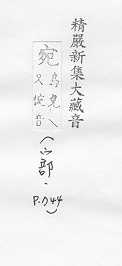 精嚴新集大藏音
宛
烏皃乀
又惋音
(宀部.
P.744)